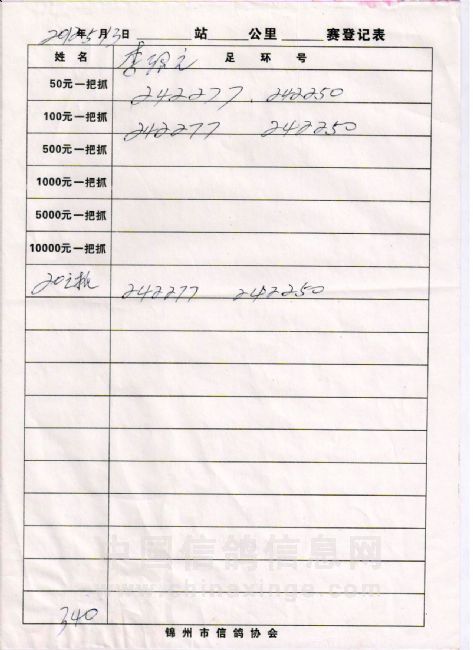 2012年5月13日 ____站____公里____赛登记表
姓名 李 足环号
50元一把抓 242277、242250
100元一把抓 242277 242250
500元一把抓
1000元一把抓
5000元一把抓
10000元一把抓
20元 242277 242250
340
中国信鸽信息网
www.chinaxinge.com
锦州市信鸽协会